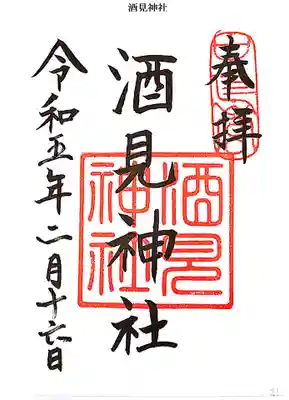 酒見神社
奉拝
酒見神社
酒見
神社
令和五年二月十六日